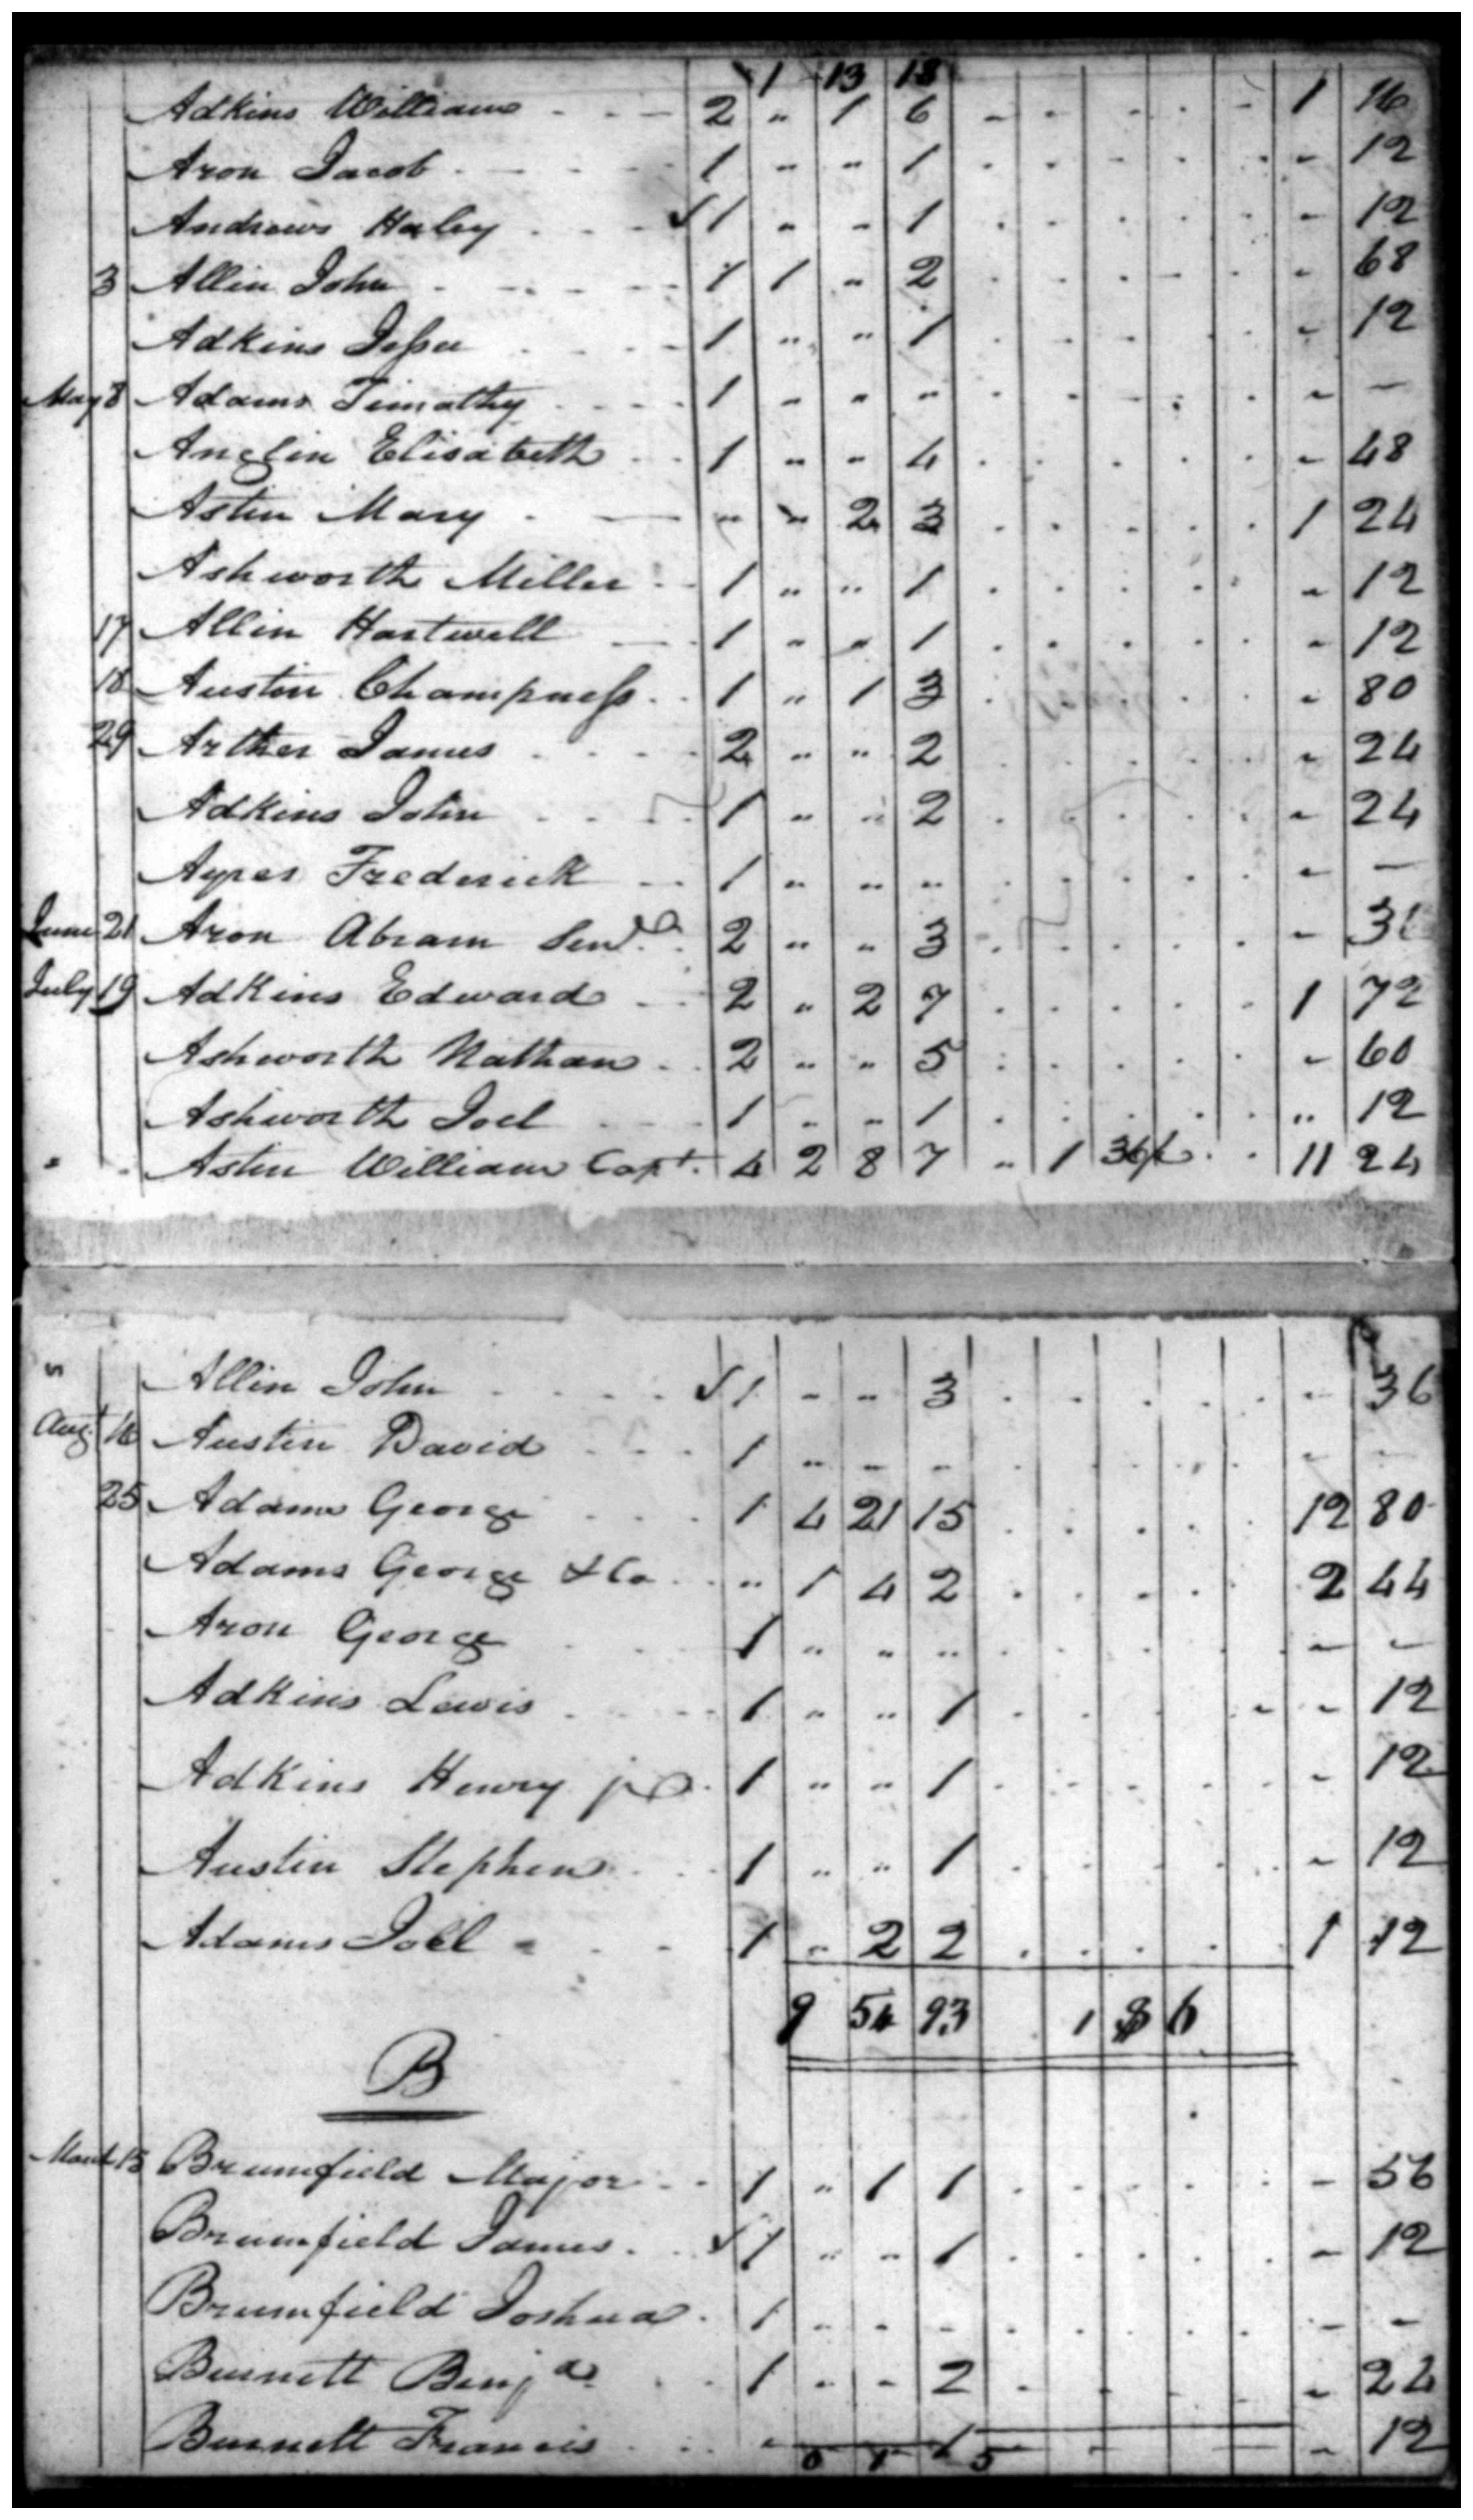 1 13 18
Adkins William 2 " 1 6 1 16
Aron Jacob 1 " " 1 - 12
Andrews Haley √1 " - 1 - 12
3 Allin John 1 1 " 2 - 68
Adkins Jesse 1 " " 1 - 12
May 8 Adams Timothy 1 " " " - —
Anglin Elisabeth 1 " " 4 - 48
Astin Mary " " 2 3 1 24
Ashworth Miller 1 " " 1 - 12
17 Allin Hartwell 1 " " 1 - 12
18 Austin Champness 1 " 1 3 - 80
29 Arther James 2 " " 2 - 24
Adkins John 1 " " 2 - 24
Ayres Frederick 1 " " " - —
June 21 Aron Abram Senr 2 " " 3 - 36
July 19 Adkins Edward 2 " 2 7 1 72
Ashworth Nathan 2 " " 5 - 60
Ashworth Joel 1 - - 1 " 12
Astin William Capt. 4 2 8 7 " 1 36 11 24
Allin John √1 - - 3 - 36
Augt 16 Austin David 1 " - - - -
25 Adams George 1 4 21 15 12 80
Adams George & Co " 1 4 2 2 44
Aron George 1 " " " - -
Adkins Lewis 1 " " 1 - 12
Adkins Henry jr 1 " " 1 - 12
Austin Stephen 1 " " 1 - 12
Adams Joel 1 " 2 2 1 12
9 54 93 1 $ 6
B
March 15 Brumfield Major 1 " 1 1 - 56
Brumfield James √1 " " 1 - 12
Brumfield Joshua 1 - - - - -
Burnett Benja 1 - - 2 - 24
Burnett Francis - 1 - 12
0 1 5